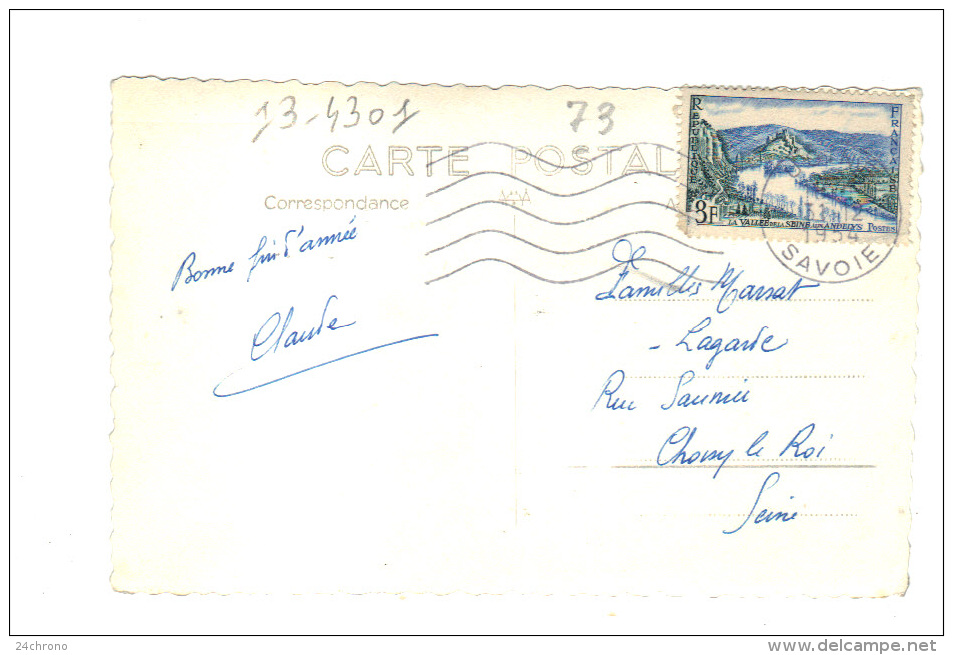 13-4301
73
CARTE POSTAL
Correspondance
REPUBLIQUE FRANÇAISE
3F
LA VALLÉE DE LA SEINE AUX ANDELYS POSTES
12
1954
SAVOIE
Bonne fin d'année
Claude
Familles Marsat
- Lagarde
Rue Saunier
Choisy le Roi
Seine
24chrono
www.delcampe.net